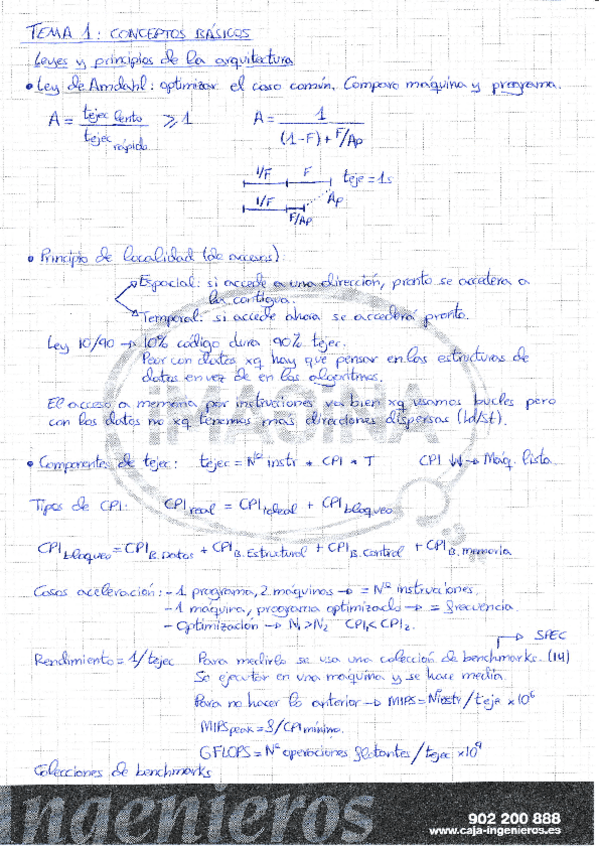 TEMA 1: CONCEPTOS BÁSICOS
Leyes y principios de la arquitectura
• Ley de Amdahl: optimizar el caso común. Comparo máquina y programa.
A = tejec lento / tejec rápido ≥ 1    A = 1 / ((1-F) + F/Ap)
1/F    F    teje = 1s
1/F    F/Ap    Ap
• Principio de localidad (de accesos):
Espacial: si accede a una dirección, pronto se accederá a
la contigua.
Temporal: si accede ahora se accederá pronto.
Ley 10/90 → 10% código dura 90% tejec.
Peor con datos xq hay que pensar en las estructuras de
datos en vez de en los algoritmos.
El acceso a memoria por instrucciones va bien xq usamos bucles pero
con los datos no xq tenemos más direcciones dispersas (ld/st).
IMAGINA
• Componentes de tejec: tejec = Nº instr * CPI * T    CPI ↓↓ → Máq. lista
Tipos de CPI: CPI real = CPI ideal + CPI bloqueo
CPI bloqueo = CPI B. Datos + CPI B. Estructural + CPI B. Control + CPI B. memoria
Casos aceleración: - 1 programa, 2 máquinas → = Nº instrucciones.
- 1 máquina, programa optimizado → = frecuencia.
- Optimización → N₁>N₂ CPI₁<CPI₂.
SPEC
Rendimiento = 1/tejec    Para medirlo se usa una colección de benchmarks. (14)
Se ejecutan en una máquina y se hace media.
Para no hacer lo anterior → MIPS = Ninstr / teje × 10⁶
MIPS peak = f/CPI mínimo.
GFLOPS = Nº operaciones flotantes / tejec × 10⁹
Colecciones de benchmarks
ngenieros
902 200 888
www.caja-ingenieros.es